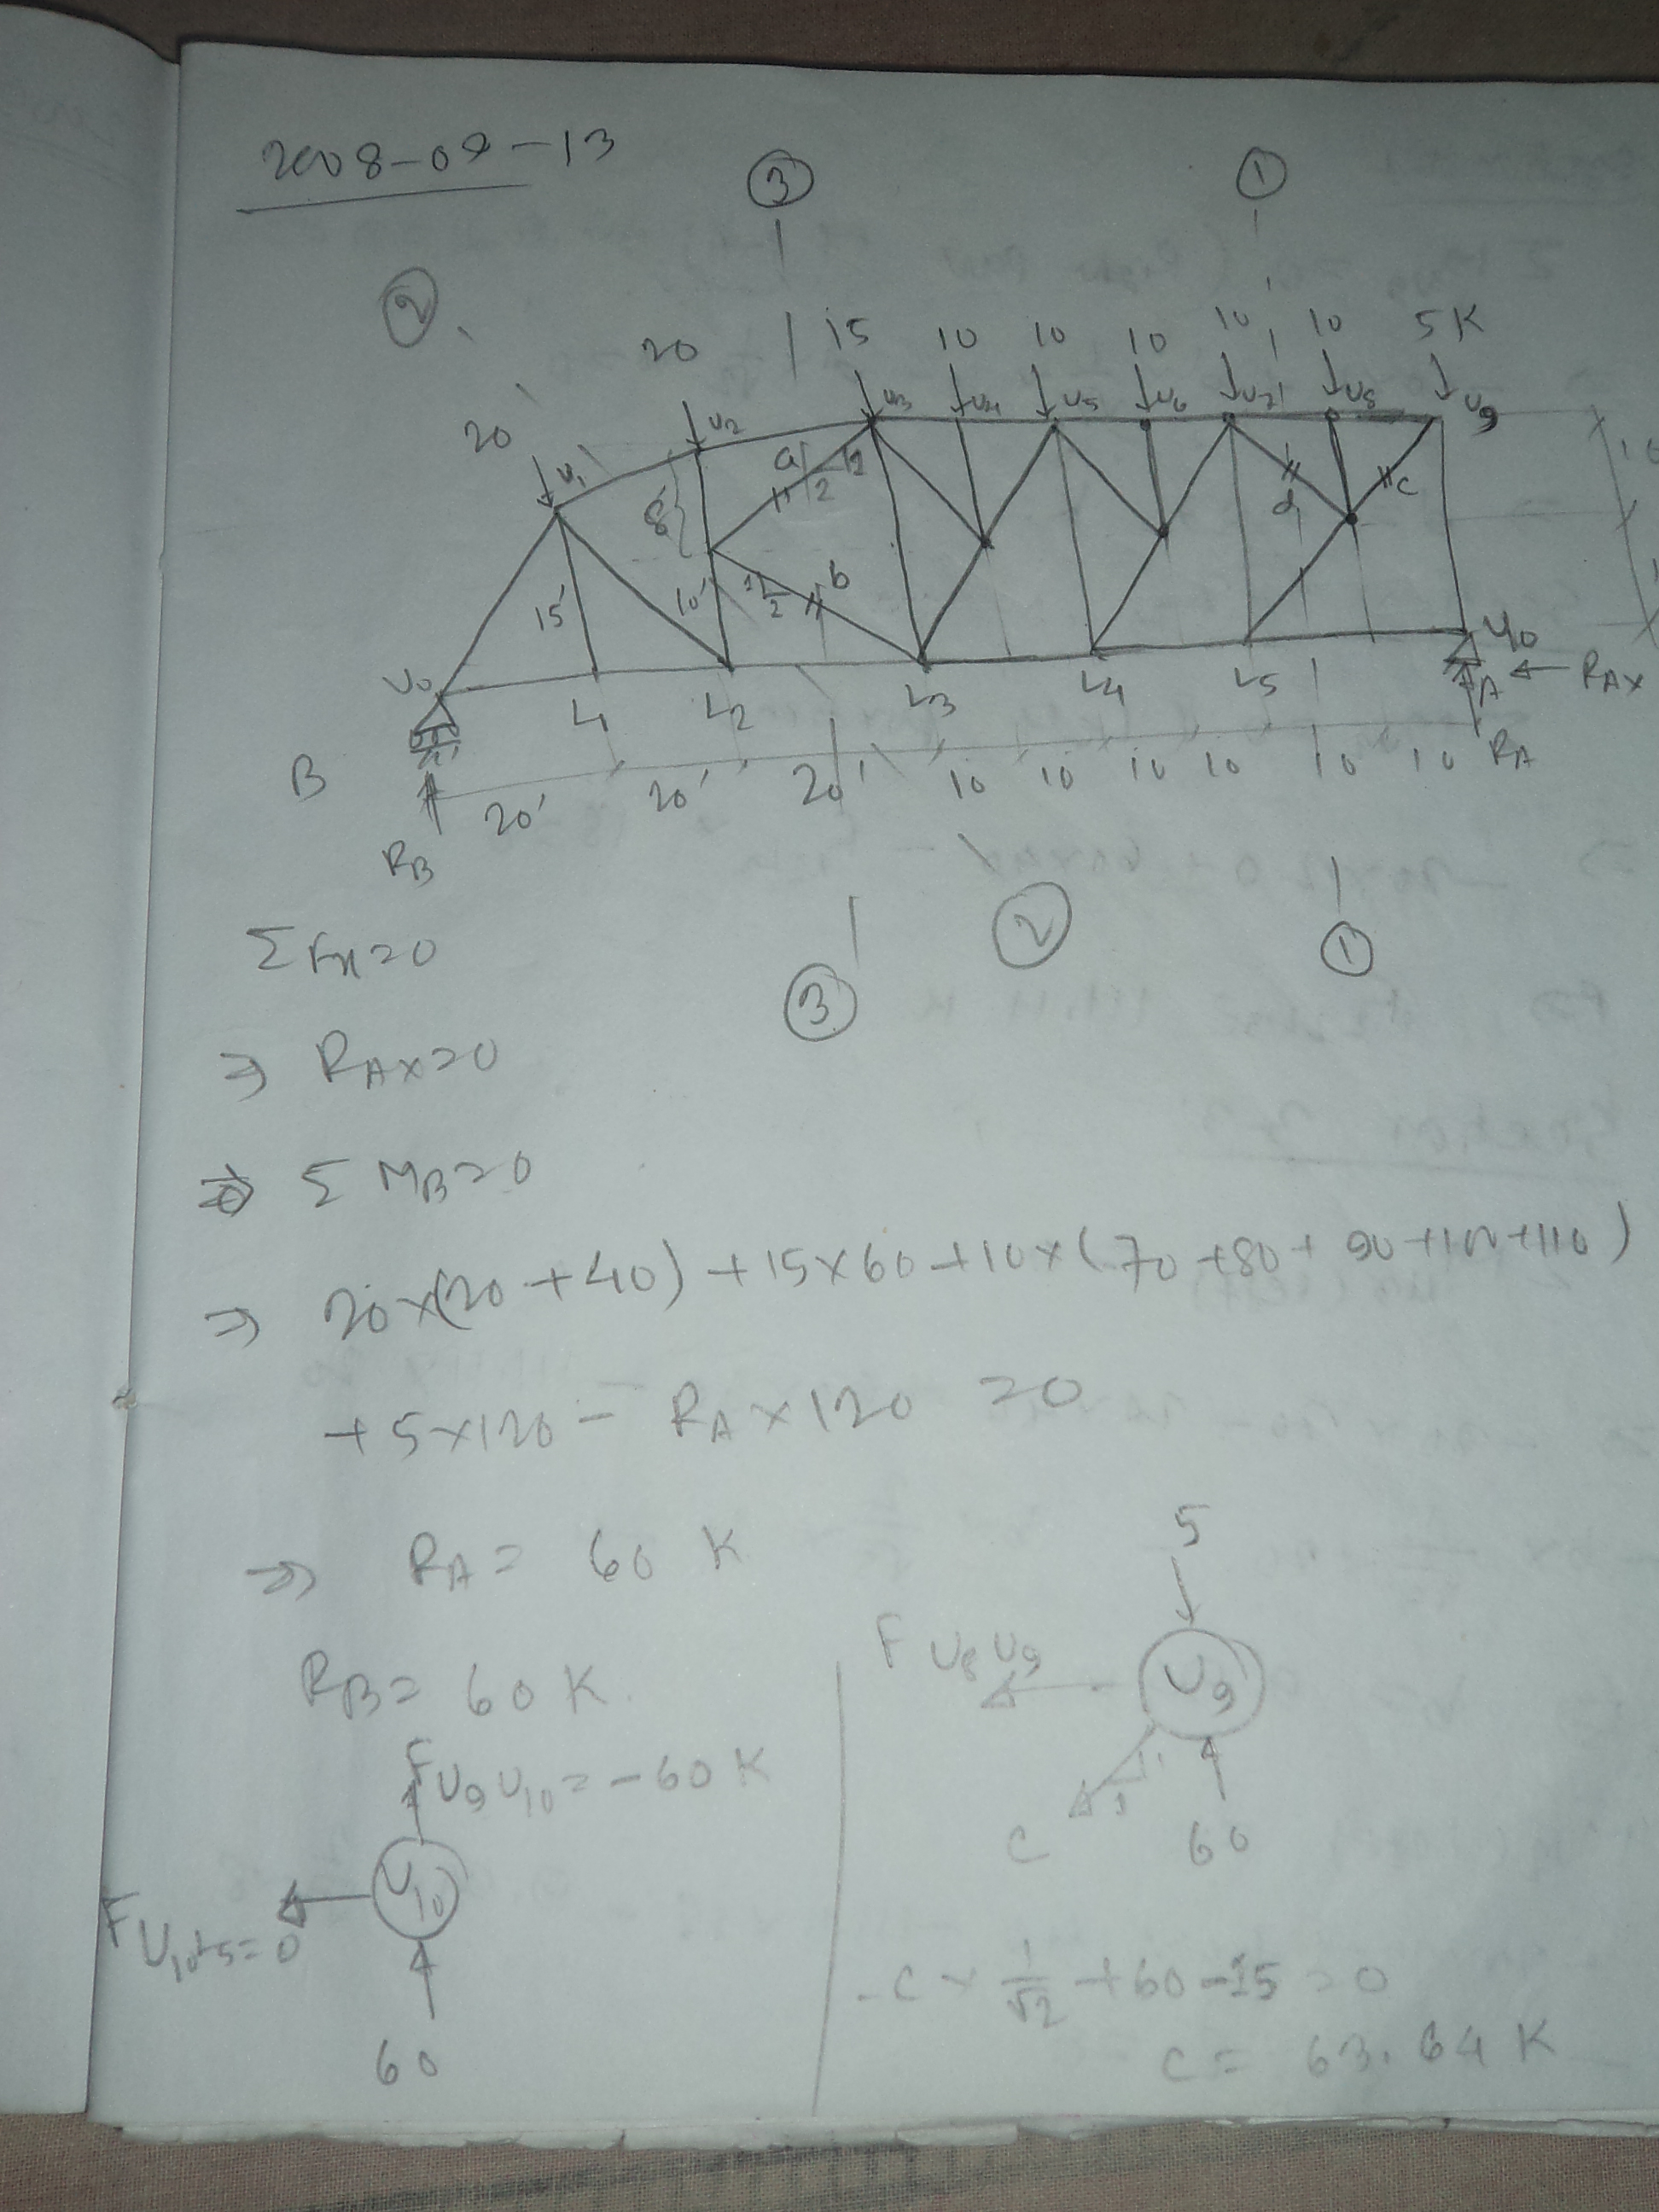 2008-09-13
3
1
2
20 20 15 10 10 10 10 10 5K
U1 U2 U3 U4 U5 U6 U7 U8 U9
a
12
2
8'
d
c
15'
10'
1
2
b
U0
L1 L2 L3 L4 L5
U10
A
RAX
B
20' 20' 20' 10 10 10 10 10 10
RA
RB
2
1
3
ΣFx=0
⇒ RAX=0
⇒ ΣMB=0
⇒ 20×(20+40)+15×60+10×(70+80+90+100+110)
+5×120-RA×120=0
⇒ RA= 60 K
RB= 60 K.
5
FU8U9
U9
1
1
C
60
FU9U10=-60K
U10
FU10L5=0
60
-C×1/√2+60-15=0
C= 63.64 K